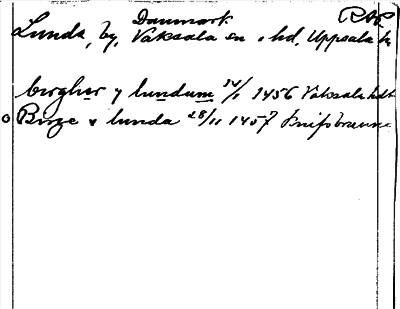 Danmark RAP
Lunda, by, Vaksala sn o hd, Uppsala l
birghir y lundum 14/1 1456 Vaksala hdt
o Birge i lunda 28/11 1457